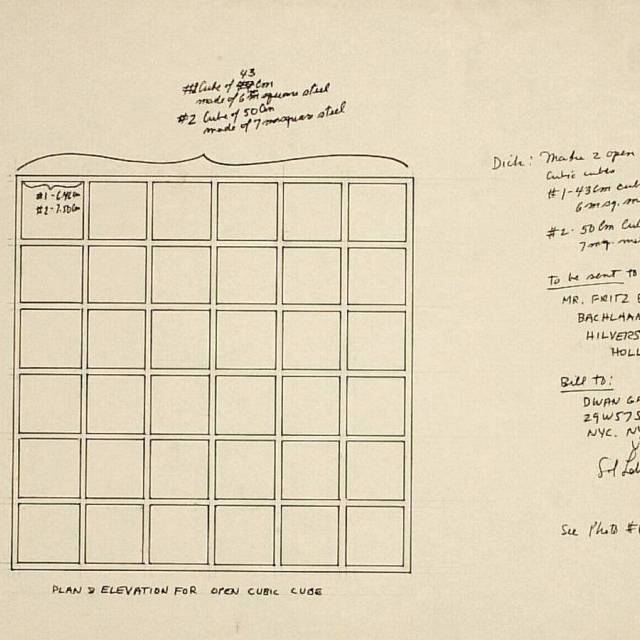 43
#1 Cube of cm
made of 6 m square steel
#2 Cube of 50 Cm
made of 7 m square steel
#1 - 6.42 Cm
#2 - 7.50 Cm
PLAN & ELEVATION FOR OPEN CUBIC CUBE
Dick: Make 2 open
cubic cubes
#1 - 43 Cm cub
6 m sq.
#2 - 50 Cm Cu
To be sent to
MR. FRITZ
BACHLHAN
HILVERS
HOLL
Bill to:
DWAN GA
29 W 57 S
NYC. NY
Sol Le
See Photo #1